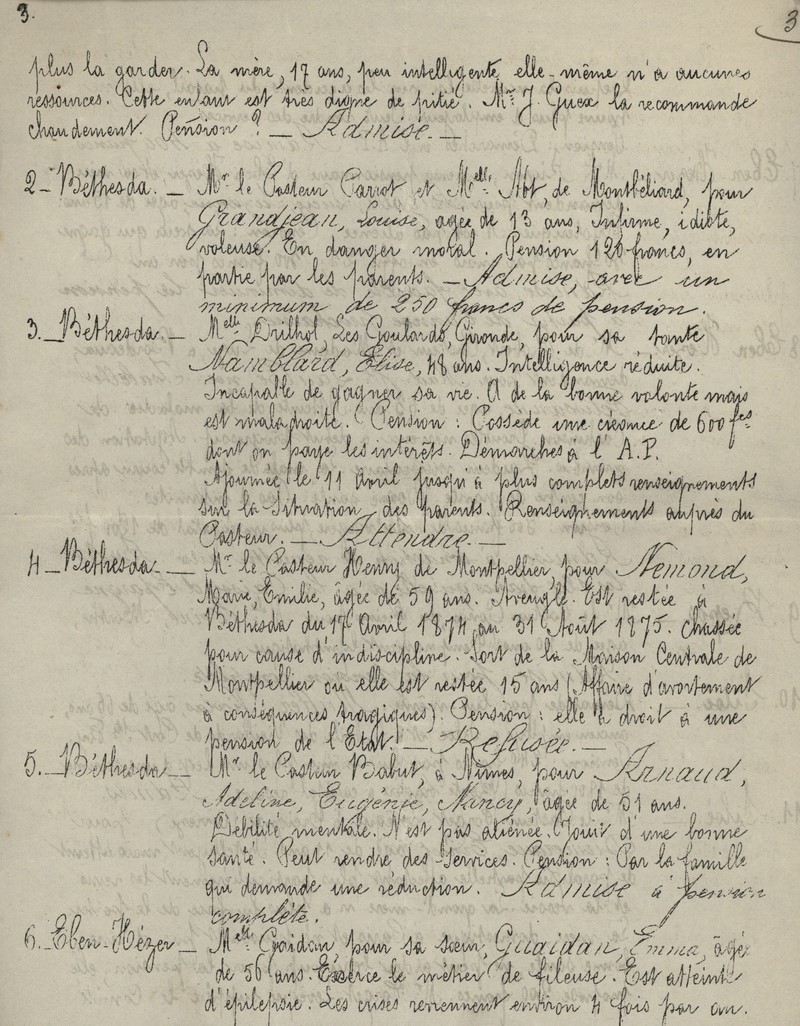 3.
3
plus la garder. La mère, 17 ans, peu intelligente elle-même n'a aucunes
ressources. Cette enfant est très digne de pitié. Mr J. Guex la recommande
chaudement. Pension ? — Admise. —
2 - Béthesda. — Mr le Pasteur Parrot et Melle Abt, de Montbéliard, pour
Grandjean, Louise, agée de 13 ans, Infirme, idiote,
voleuse. En danger moral. Pension 120 francs, en
partie par les parents. — Admise, avec un
minimum de 250 francs de pension.
3. - Béthesda. — Melle Drilhol, Les Goulards, Gironde, pour sa tante
Namblard, Elise, 48 ans. Intelligence réduite.
Incapable de gagner sa vie. A de la bonne volonté mais
est maladroite. Pension : Possède une créance de 600 fcs
dont on paye les intérêts. Démarches à l'A.P.
Ajournée le 11 Avril jusqu'à plus complets renseignements
sur la Situation des parents. Renseignements auprès du
Pasteur. — Attendre. —
4 - Béthesda. — Mr le Pasteur Henry de Montpellier, pour Nemond,
Marie, Emilie, âgée de 59 ans. Aveugle. Est restée à
Béthesda du 17 Avril 1874 au 31 Août 1875. Chassée
pour cause d'indiscipline. Sort de la Maison Centrale de
Montpellier où elle est restée 15 ans (Affaire d'avortement
à conséquences tragiques). Pension : elle a droit à une
pension de l'Etat. — Refusée. —
5. - Béthesda — Mr le Pasteur Babut, à Nîmes, pour Arnaud,
Adeline, Eugénie, Nancy, âgée de 51 ans.
Débilité mentale. N'est pas aliénée. Jouit d'une bonne
santé. Peut rendre des services. Pension : Par la famille
qui demande une réduction. Admise à pension
complète.
6. - Eben-Hézer — Melle Gaidan, pour sa sœur, Guaidan, Emma, âgée
de 56 ans. Exerce le métier de fileuse. Est atteinte
d'épilepsie. Les crises reviennent environ 4 fois par an.